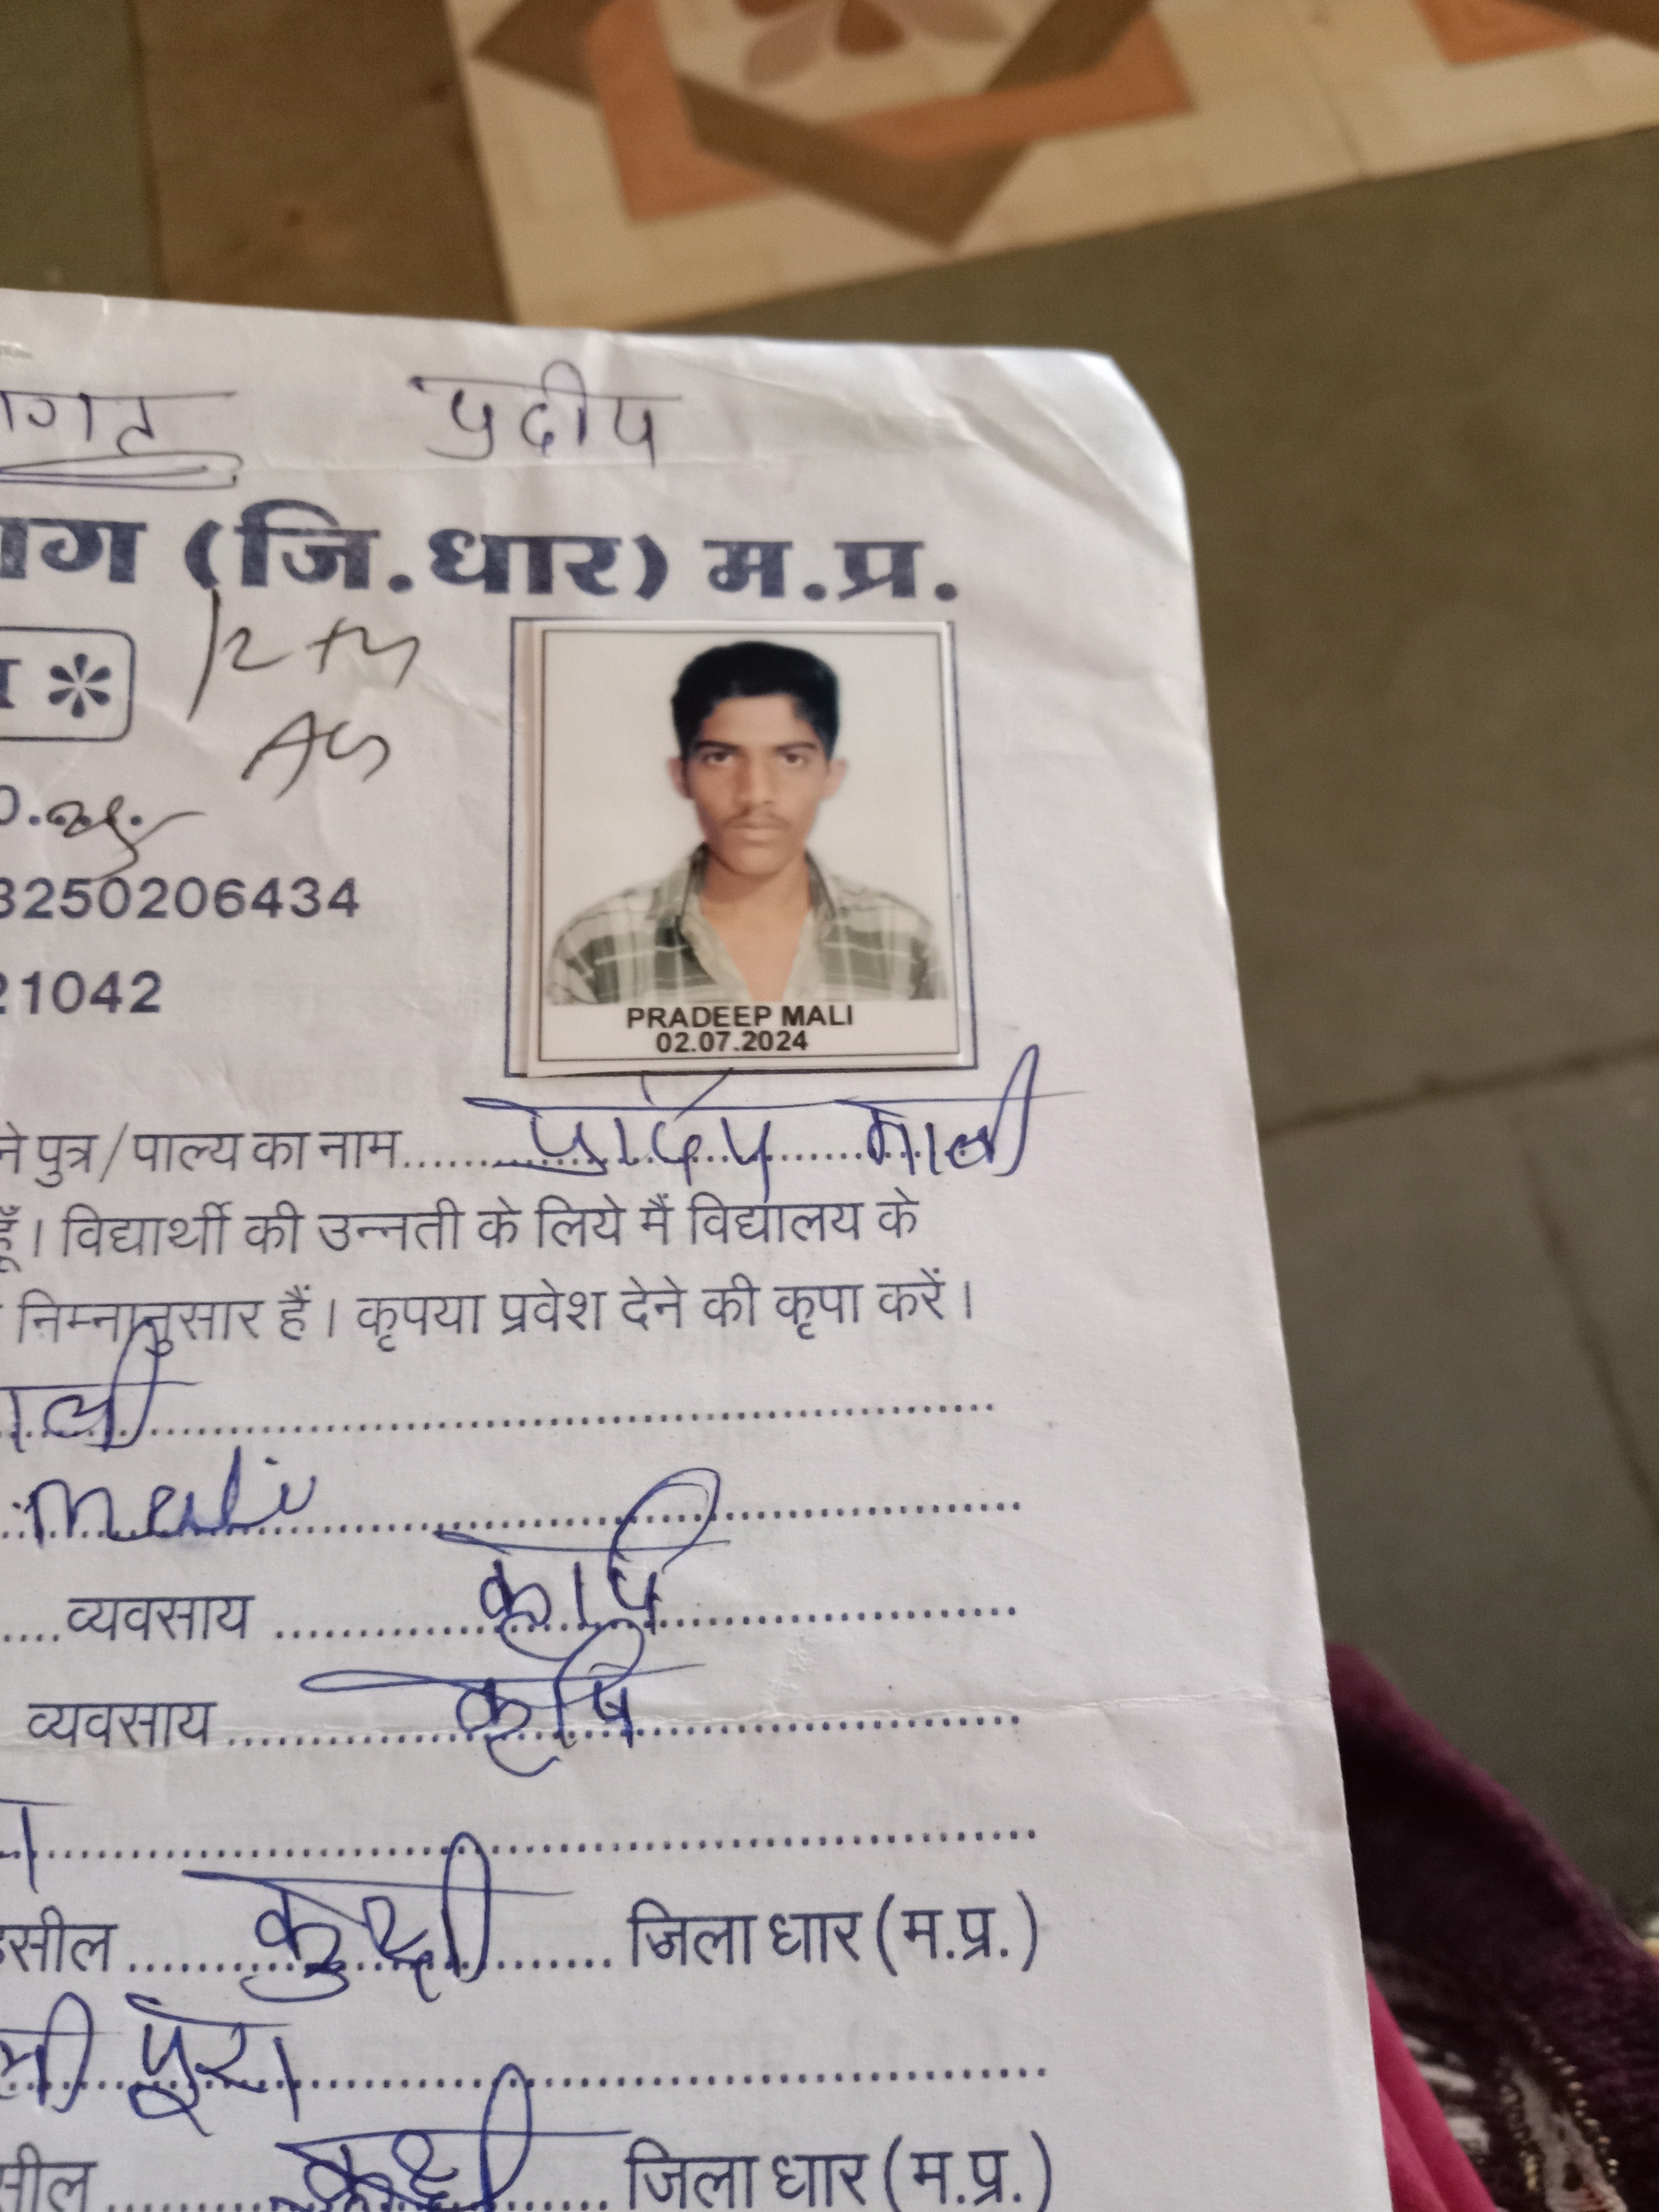 प्रदीप
ाग (जि.धार) म.प्र.
12th
AG
3250206434
21042
PRADEEP MALI
02.07.2024
ने पुत्र/पाल्य का नाम.............. माली
हूँ। विद्यार्थी की उन्नती के लिये मैं विद्यालय के
निम्नानुसार हैं। कृपया प्रवेश देने की कृपा करें।
ाली
mali
.....व्यवसाय .......... कृषि
व्यवसाय .......... कृषि
सील .......... कुक्षी .......... जिला धार (म.प्र.)
पूरा
सील .......... कुक्षी .......... जिला धार (म.प्र.)